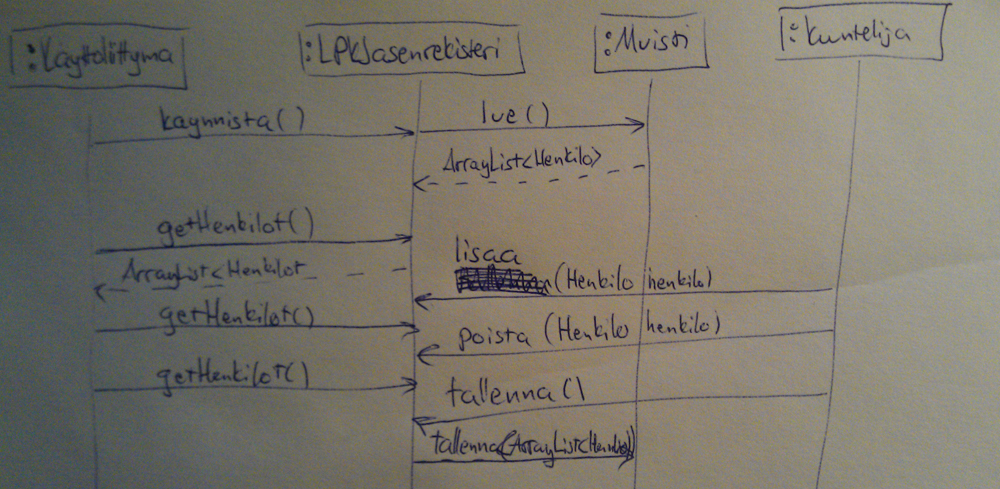 :Käyttolittyma
:LPKJasenrekisteri
:Muisti
:Kuntelija
kaynnista()
lue()
ArrayList<Henkilo>
getHenkilot()
lisaa
ArrayList<Henkilot
(Henkilo henkilo)
getHenkilot()
poista (Henkilo henkilo)
getHenkilot()
tallenna()
tallenna(ArrayList<Henkilo>)